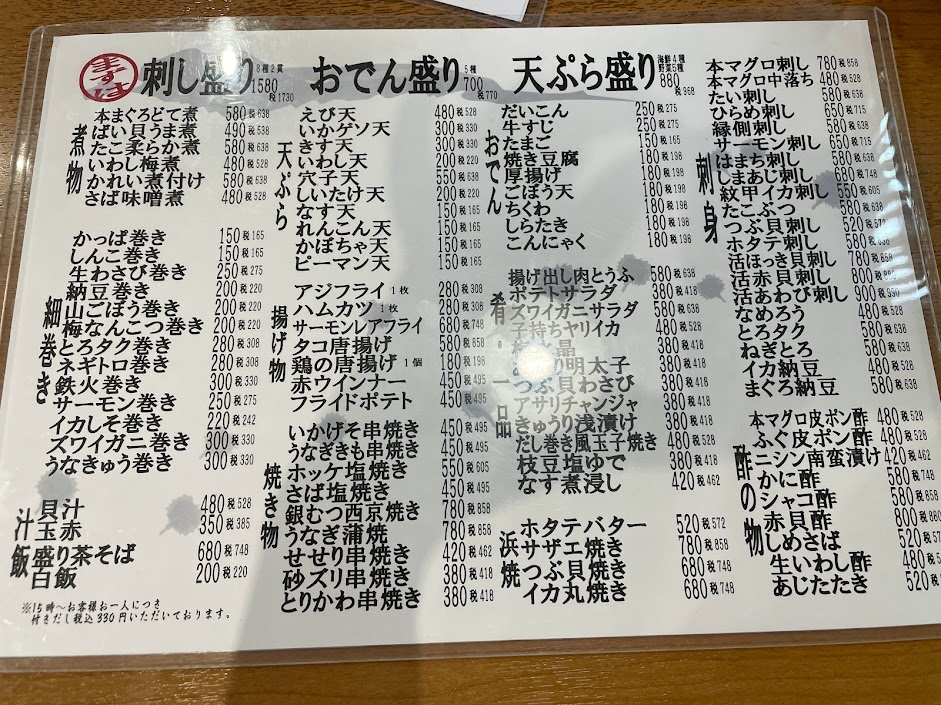 まずは
刺し盛り 8種2貫 1580 税1730
おでん盛り 5種 700 税770
天ぷら盛り 海鮮4種 野菜5種 880 税968
煮物
本まぐろどて煮 580 税638
ばい貝うま煮 490 税538
たこ柔らか煮 580 税638
いわし梅煮 480 税528
かれい煮付け 580 税638
さば味噌煮 480 税528
細巻き
かっぱ巻き 150 税165
しんこ巻き 150 税165
生わさび巻き 250 税275
納豆巻き 200 税220
山ごぼう巻き 200 税220
梅なんこつ巻き 200 税220
とろタク巻き 280 税308
ネギトロ巻き 280 税308
鉄火巻き 300 税330
サーモン巻き 250 税275
イカしそ巻き 220 税242
ズワイガニ巻き 300 税330
うなきゅう巻き 300 税330
汁
貝汁 480 税528
玉赤 350 税385
飯
盛り茶そば 680 税748
白飯 200 税220
※15時〜お客様お一人につき
付きだし税込330円いただいております。
天ぷら
えび天 480 税528
いかゲソ天 300 税330
きす天 300 税330
いわし天 200 税220
穴子天 550 税638
しいたけ天 200 税220
なす天 150 税165
れんこん天 150 税165
かぼちゃ天 150 税165
ピーマン天 150 税165
揚げ物
アジフライ 1枚 280 税308
ハムカツ 1枚 280 税308
サーモンレアフライ 680 税748
タコ唐揚げ 580 税658
鶏の唐揚げ 1個 180 税198
赤ウインナー 450 税495
フライドポテト 450 税495
焼き物
いかげそ串焼き 450 税495
うなぎきも串焼き 450 税495
ホッケ塩焼き 550 税605
さば塩焼き 450 税495
銀むつ西京焼き 780 税858
うなぎ蒲焼 780 税858
せせり串焼き 420 税462
砂ズリ串焼き 380 税418
とりかわ串焼き 380 税418
おでん
だいこん 250 税275
牛すじ 250 税275
たまご 150 税165
焼き豆腐 180 税198
厚揚げ 180 税198
ごぼう天 180 税198
ちくわ 180 税198
しらたき 180 税198
こんにゃく 180 税198
肴・一品
揚げ出し肉とうふ 580 税638
ポテトサラダ 380 税418
ズワイガニサラダ 580 税638
子持ちヤリイカ 480 税528
晶 380 税418
明太子 380 税418
つぶ貝わさび 380 税418
アサリチャンジャ 380 税418
きゅうり浅漬け 380 税418
だし巻き風玉子焼き 480 税528
枝豆塩ゆで 380 税418
なす煮浸し 420 税462
浜焼
ホタテバター 520 税572
サザエ焼き 780 税858
つぶ貝焼き 680 税748
イカ丸焼き 680 税748
刺身
本マグロ刺し 780 税858
本マグロ中落ち 480 税528
たい刺し 580 税638
ひらめ刺し 650 税715
縁側刺し 580 税638
サーモン刺し 650 税715
はまち刺し 580 税638
しまあじ刺し 680 税748
紋甲イカ刺し 550 税605
たこぶつ 580 税638
つぶ貝刺し 520 税572
ホタテ刺し 580 税638
活ほっき貝刺し 780
活赤貝刺し 800
活あわび刺し 900 税990
なめろう 480 税528
とろタク 480 税528
ねぎとろ 580 税638
イカ納豆 480 税528
まぐろ納豆 580 税638
酢の物
本マグロ皮ポン酢 480 税528
ふぐ皮ポン酢 480 税528
ニシン南蛮漬け 420 税462
かに酢 580 税638
シャコ酢 580 税638
赤貝酢 800
しめさば 520
生いわし酢 480
あじたたき 520